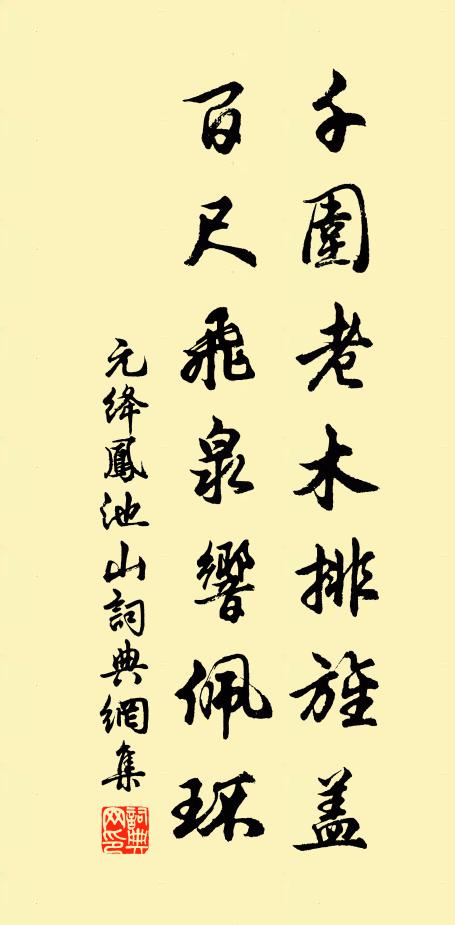 千圍老木排旌盖
百尺飛泉響佩环
元絳鳳池山詞典網集
詞典
网印